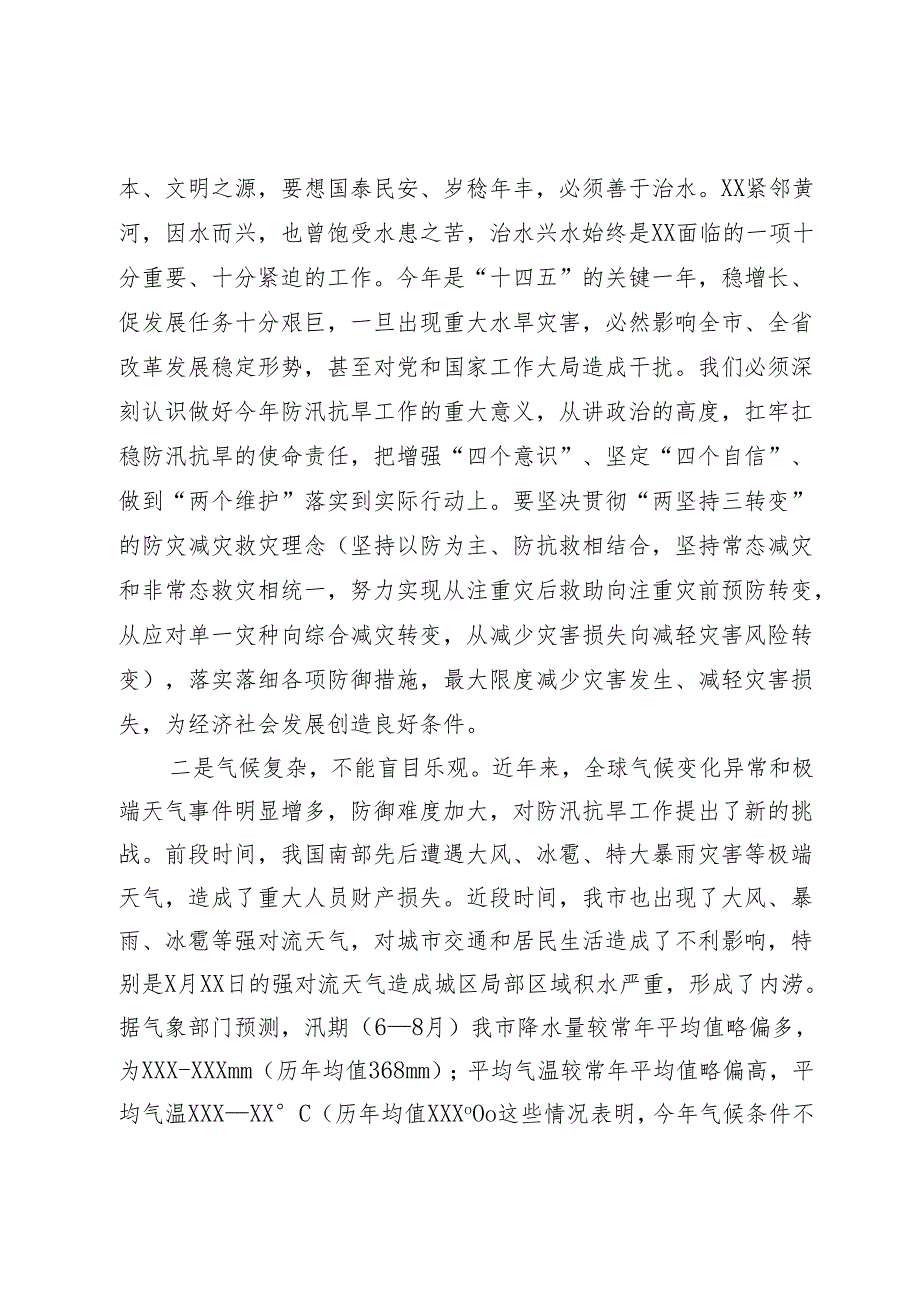 本、文明之源，要想国泰民安、岁稔年丰，必须善于治水。XX紧邻黄
河，因水而兴，也曾饱受水患之苦，治水兴水始终是XX面临的一项十
分重要、十分紧迫的工作。今年是“十四五”的关键一年，稳增长、
促发展任务十分艰巨，一旦出现重大水旱灾害，必然影响全市、全省
改革发展稳定形势，甚至对党和国家工作大局造成干扰。我们必须深
刻认识做好今年防汛抗旱工作的重大意义，从讲政治的高度，扛牢扛
稳防汛抗旱的使命责任，把增强“四个意识”、坚定“四个自信”、
做到“两个维护”落实到实际行动上。要坚决贯彻“两坚持三转变”
的防灾减灾救灾理念（坚持以防为主、防抗救相结合，坚持常态减灾
和非常态救灾相统一，努力实现从注重灾后救助向注重灾前预防转变，
从应对单一灾种向综合减灾转变，从减少灾害损失向减轻灾害风险转
变），落实落细各项防御措施，最大限度减少灾害发生、减轻灾害损
失，为经济社会发展创造良好条件。
二是气候复杂，不能盲目乐观。近年来，全球气候变化异常和极
端天气事件明显增多，防御难度加大，对防汛抗旱工作提出了新的挑
战。前段时间，我国南部先后遭遇大风、冰雹、特大暴雨灾害等极端
天气，造成了重大人员财产损失。近段时间，我市也出现了大风、暴
雨、冰雹等强对流天气，对城市交通和居民生活造成了不利影响，特
别是X月XX日的强对流天气造成城区局部区域积水严重，形成了内涝。
据气象部门预测，汛期（6—8月）我市降水量较常年平均值略偏多，
为XXX-XXXmm（历年均值368mm）；平均气温较常年平均值略偏高，平
均气温XXX—XX°C（历年均值XXXºOo这些情况表明，今年气候条件不